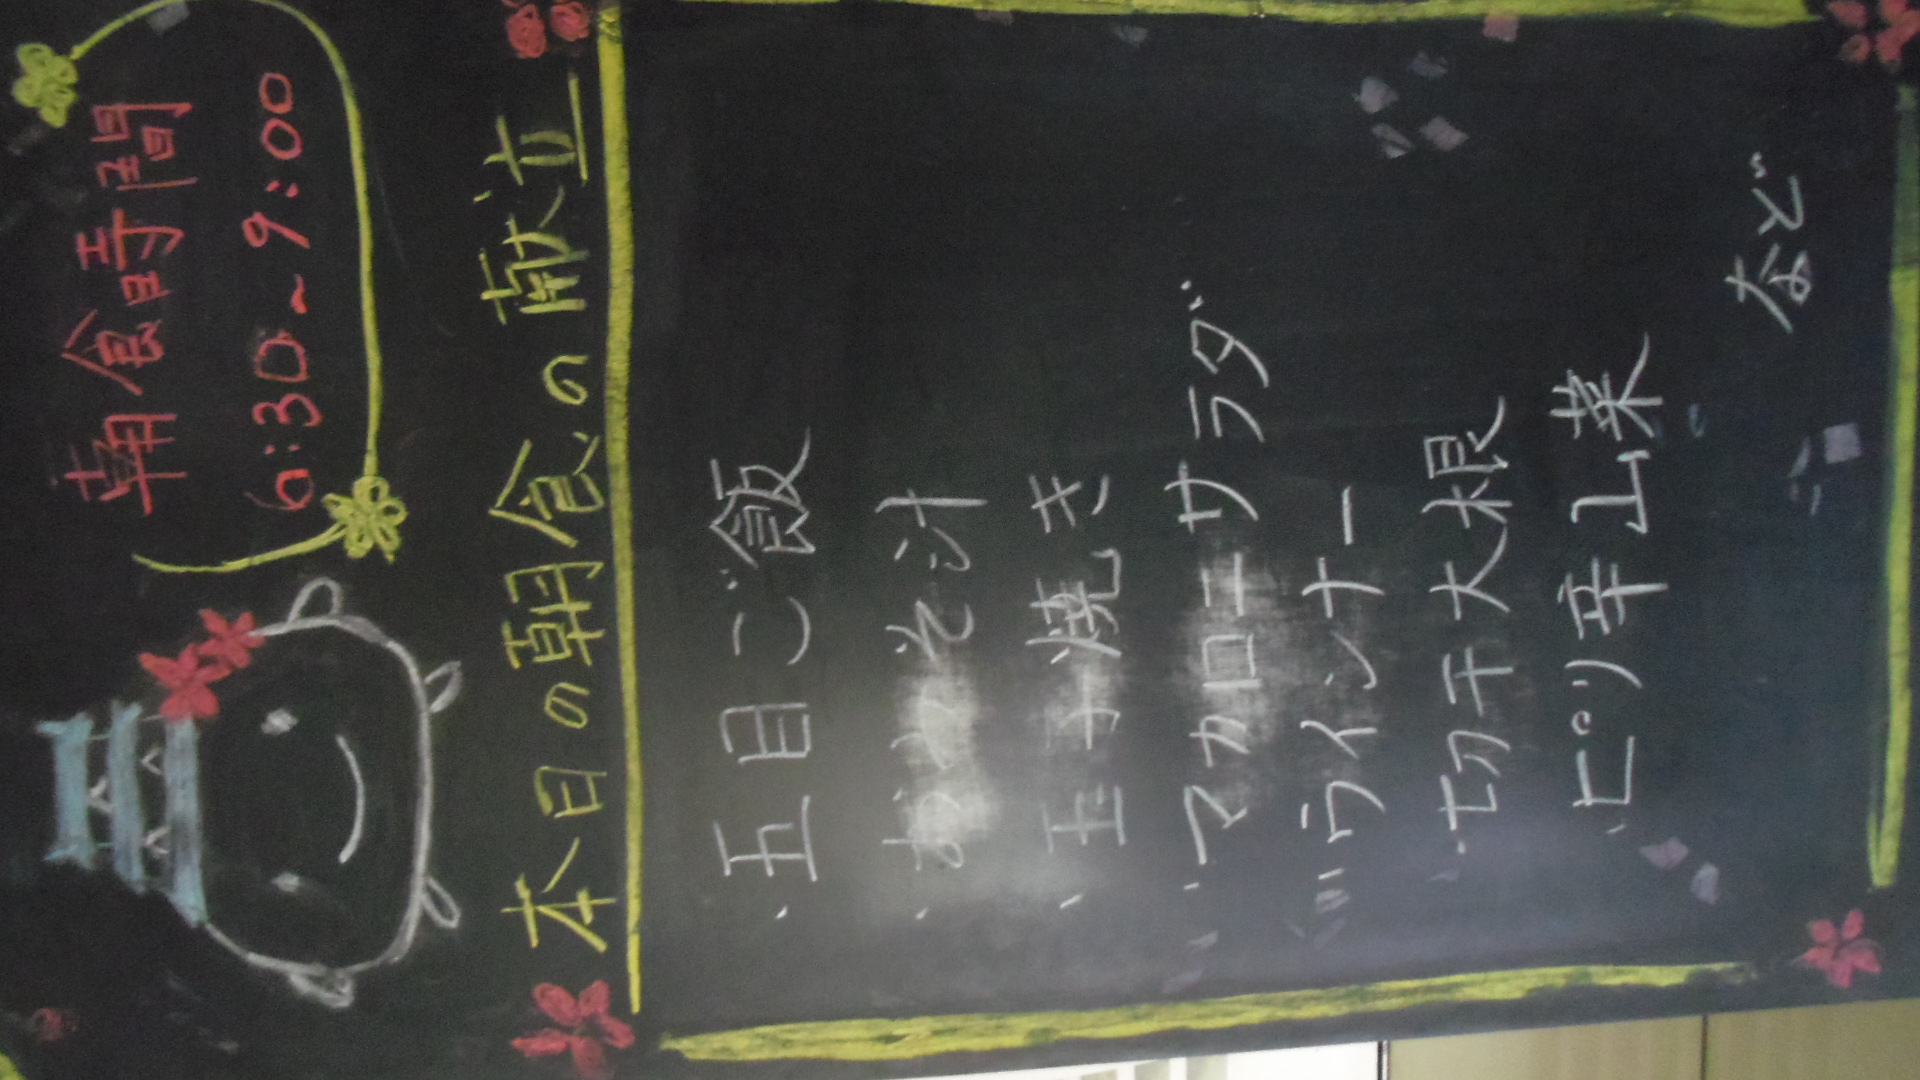 朝食時間
6:30～9:00
本日の朝食の献立
・五目ご飯
・おみそ汁
・玉子焼き
・マカロニサラダ
・ウインナー
・切干大根
・ピリ辛山菜
など